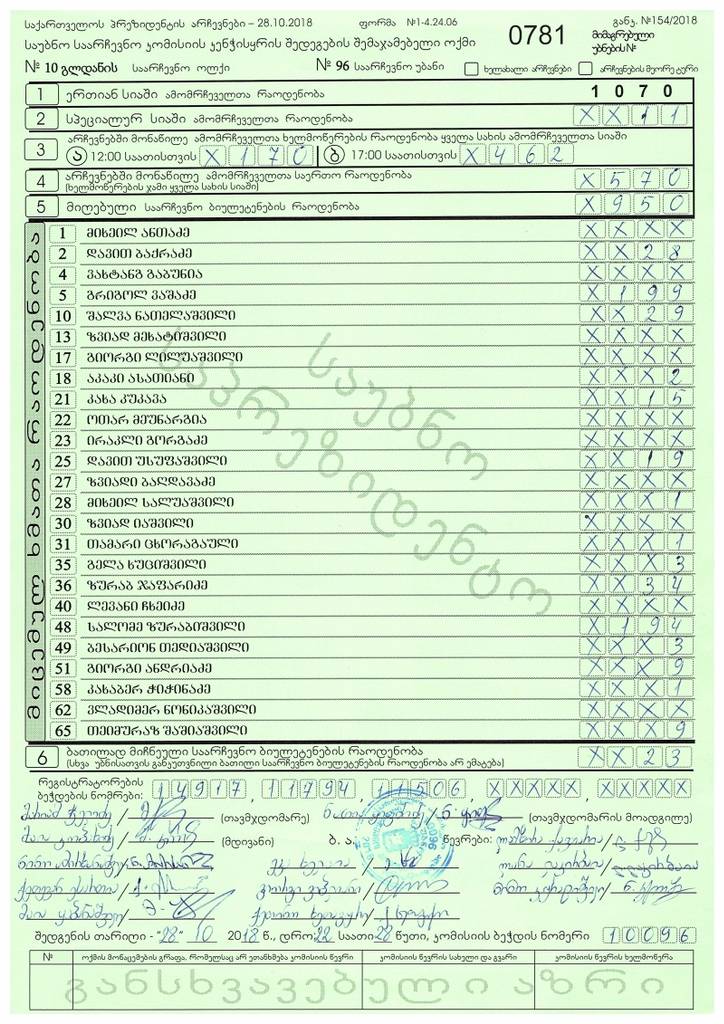 საქართველოს პრეზიდენტის არჩევნები – 28.10.2018 ფორმა №1-4.24.06 განკ. №154/2018
საუბნო საარჩევნო კომისიის კენჭისყრის შედეგების შემაჯამებელი ოქმი 0781 მიმაგრებული უბნების №
№ 10 გლდანის საარჩევნო ოლქი № 96 საარჩევნო უბანი ხელახალი არჩევნები არჩევნების მეორე ტური
1 ერთიან სიაში ამომრჩეველთა რაოდენობა 1 0 7 0
2 სპეციალურ სიაში ამომრჩეველთა რაოდენობა X X 1 1
არჩევნებში მონაწილე ამომრჩეველთა ხელმოწერების რაოდენობა ყველა სახის ამომრჩეველთა სიაში
3 ა 12:00 საათისთვის X 1 7 0 ბ 17:00 საათისთვის X 4 6 2
4 არჩევნებში მონაწილე ამომრჩეველთა საერთო რაოდენობა X 5 7 0
(ხელმოწერების ჯამი ყველა სახის სიაში)
5 მიღებული საარჩევნო ბიულეტენების რაოდენობა X 9 5 0
მიცემულ ხმათა რაოდენობა
1 მიხეილ ანთაძე X X X X
2 დავით ბაქრაძე X X 2 8
4 ვახტანგ გაბუნია X X X X
5 გრიგოლ ვაშაძე X 1 9 9
10 შალვა ნათელაშვილი X X 2 9
13 ზვიად მეხატიშვილი X X X X
17 გიორგი ლილუაშვილი X X X X
18 აკაკი ასათიანი X X X 2
21 კახა კუკავა X X 1 5
22 ოთარ მეუნარგია X X X X
23 ირაკლი გორგაძე X X X X
25 დავით უსუფაშვილი X X 1 9
27 ზვიადი ბაღდავაძე X X X X
28 მიხეილ სალუაშვილი X X X 1
30 ზვიად იაშვილი X X X X
31 თამარი ცხორაგაული X X X 1
35 გელა ხუციშვილი X X X 3
36 ზურაბ ჯაფარიძე X X 3 4
40 ლევანი ჩხეიძე X X X X
48 სალომე ზურაბიშვილი X 1 9 4
49 ბესარიონ თედიაშვილი X X X 3
51 გიორგი ანდრიაძე X X X 9
58 კახაბერ ჭიჭინაძე X X X 1
62 ვლადიმერ ნონიკაშვილი X X X X
65 თეიმურაზ შაშიაშვილი X X X 9
საუბნო
საპრეზიდენტო
6 ბათილად მიჩნეული საარჩევნო ბიულეტენების რაოდენობა X X 2 3
(სხვა უბნისათვის განკუთვნილი ბათილი საარჩევნო ბიულეტენების რაოდენობა არ ემატება)
რეგისტრატორების
ბეჭდების ნომრები: 1 4 9 1 7 , 1 1 7 9 4 , 1 1 5 0 6 , X X X X X , X X X X X
(თავმჯდომარე) (თავმჯდომარის მოადგილე)
(მდივანი) ბ. ა. წევრები:
შედგენის თარიღი - "28" 10 2018 წ., დრო: 22 საათი 28 წუთი, კომისიის ბეჭდის ნომერი 1 0 0 9 6
№ ოქმის მონაცემების გრაფა, რომელსაც არ ეთანხმება კომისიის წევრი კომისიის წევრის სახელი და გვარი კომისიის წევრის ხელმოწერა
განსხვავებული აზრი